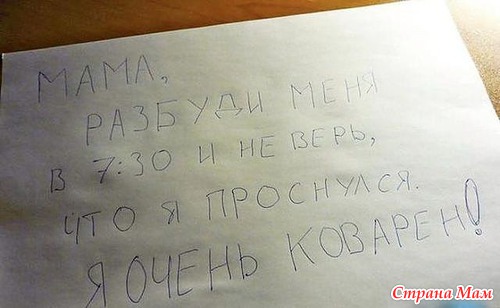 МАМА,
РАЗБУДИ МЕНЯ
В 7:30 И НЕ ВЕРЬ,
ЧТО Я ПРОСНУЛСЯ.
Я ОЧЕНЬ КОВАРЕН!
Страна Мам